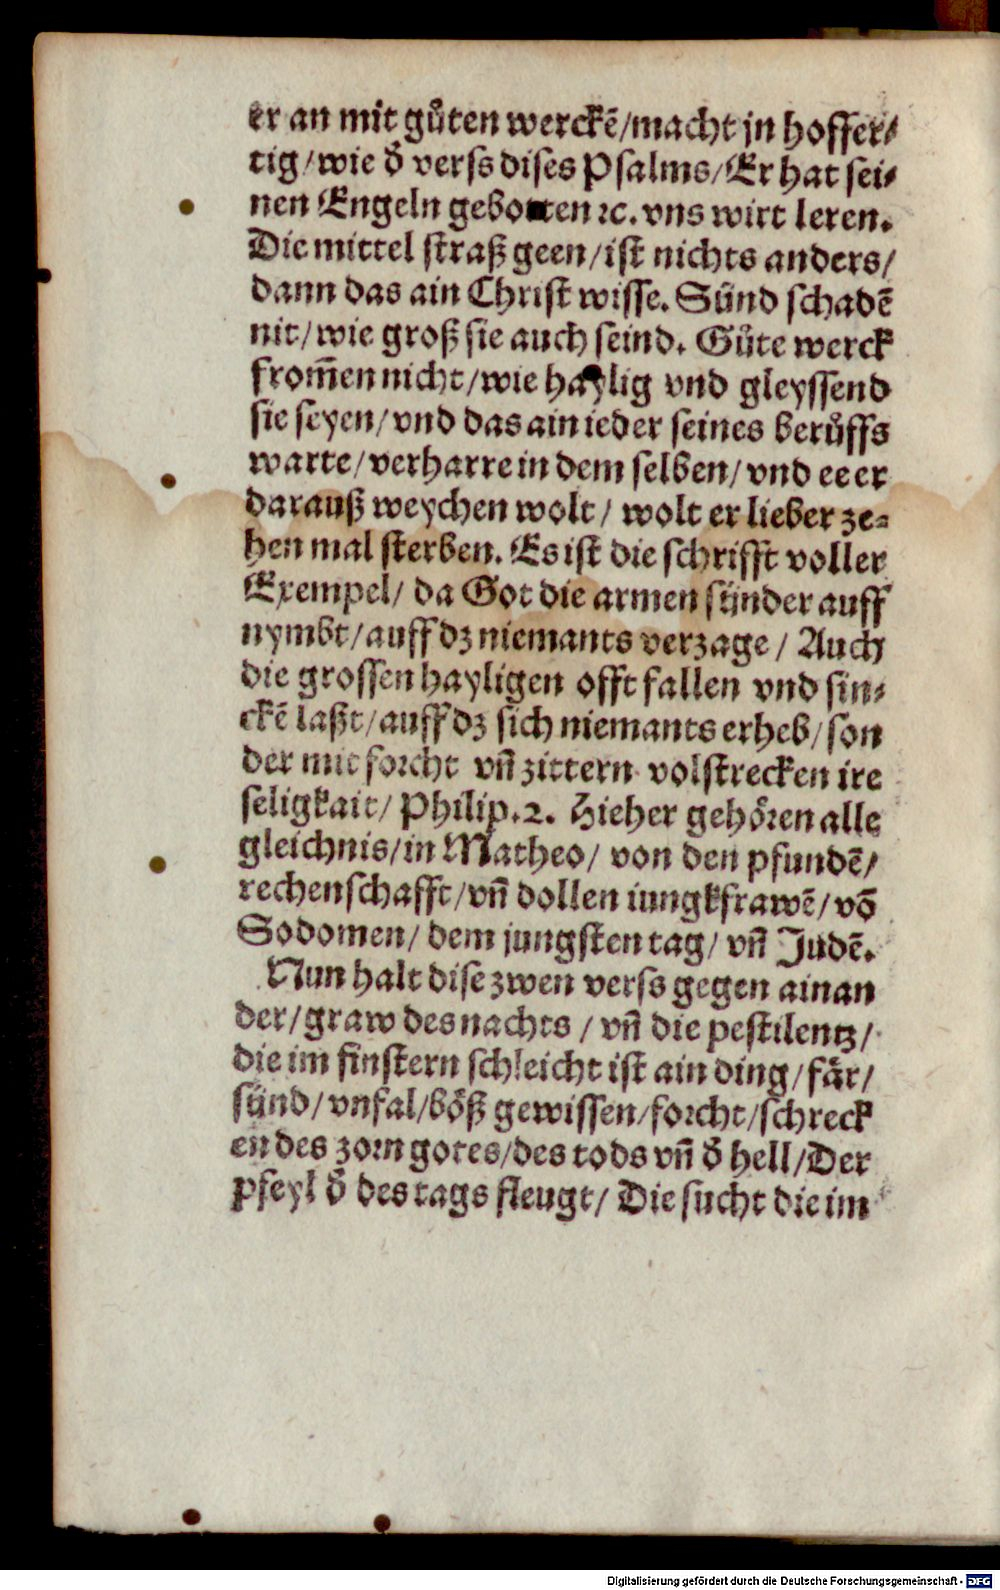 er an mit gůten werckẽ/macht jn hoffer⸗
tig/wie d̓ verss dises Psalms/Er hat sei⸗
nen Engeln gebotten ꝛc. vns wirt leren.
Die mittel straß geen/ist nichts anders/
dann das ain Christ wisse. Sünd schadẽ
nit/wie groß sie auch seind. Gůte werck
from̃en nicht/wie haylig vnd gleyssend
sie seyen/vnd das ain ieder seines berůffs
warte/verharre in dem selben/vnd ee er
darauß weychen wolt/ wolt er lieber ze⸗
hen mal sterben. Es ist die schrifft voller
Exempel/ da Got die armen sünder auff
nymbt/auff dz niemants verzage/ Auch
die grossen hayligen offt fallen vnd sin⸗
ckẽ laßt/auff dz sich niemants erheb/son
der mit forcht vñ zittern volstrecken ire
seligkait/ Philip.2. Hieher gehören alle
gleichnis/in Matheo/ von den pfundẽ/
rechenschafft/vñ dollen iungkfrawẽ/võ
Sodomen/ dem jungsten tag/ vñ Judẽ.
Nun halt dise zwen verss gegen ainan
der/graw des nachts / vñ die pestilentz/
die im finstern schleicht ist ain ding/fär/
sünd/vnfal/böß gewissen/forcht/schreck
en des zorn gotes/des tods vñ d̓ hell/Der
pfeyl d̓ des tags fleugt/ Die sucht die im
Digitalisierung gefördert durch die Deutsche Forschungsgemeinschaft - DFG